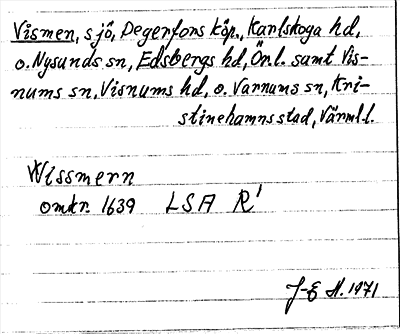 Vismen, sjö, Degerfors köp., Karlskoga hd,
o. Nysunds sn, Edsbergs hd, Ön.l. samt Vis-
nums sn, Visnums hd, o. Varnums sn, Kri-
stinehamns stad, Värml.l.
Wissmern
omkr. 1639 LSA R¹
J-E H. 1971